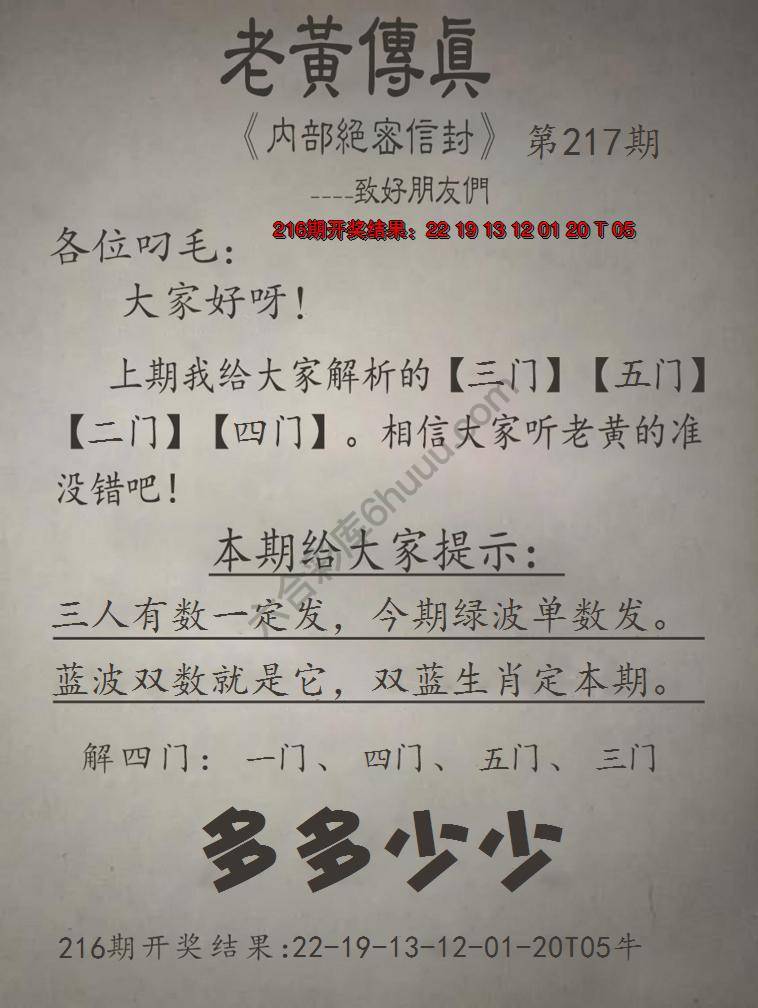 老黃傳眞
《内部絕密信封》 第217期
----致好朋友們
216期开奖结果：22 19 13 12 01 20 T 05
各位叼毛：
大家好呀！
上期我给大家解析的【三门】【五门】
【二门】【四门】。相信大家听老黄的准
没错吧！
本期给大家提示：
三人有数一定发，今期绿波单数发。
蓝波双数就是它，双蓝生肖定本期。
解四门：一门、四门、五门、三门
多多少少
216期开奖结果:22-19-13-12-01-20T05牛
六合彩库6huuu.com